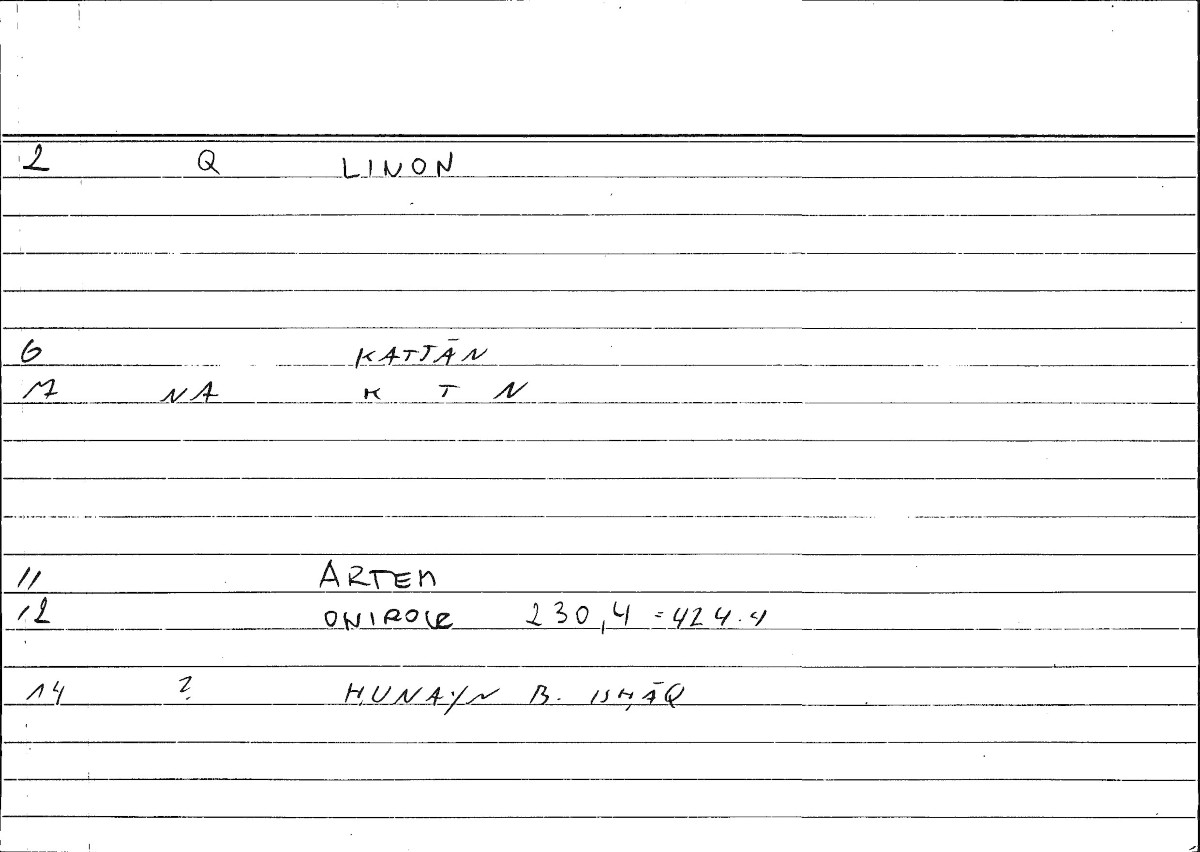 2 Q LINON
6 KATTĀN
7 NA K T N
11 ARTEM
12 ONIROCR 230,4 = 424.4
14 ? ḤUNAYN B. ISḤĀQ